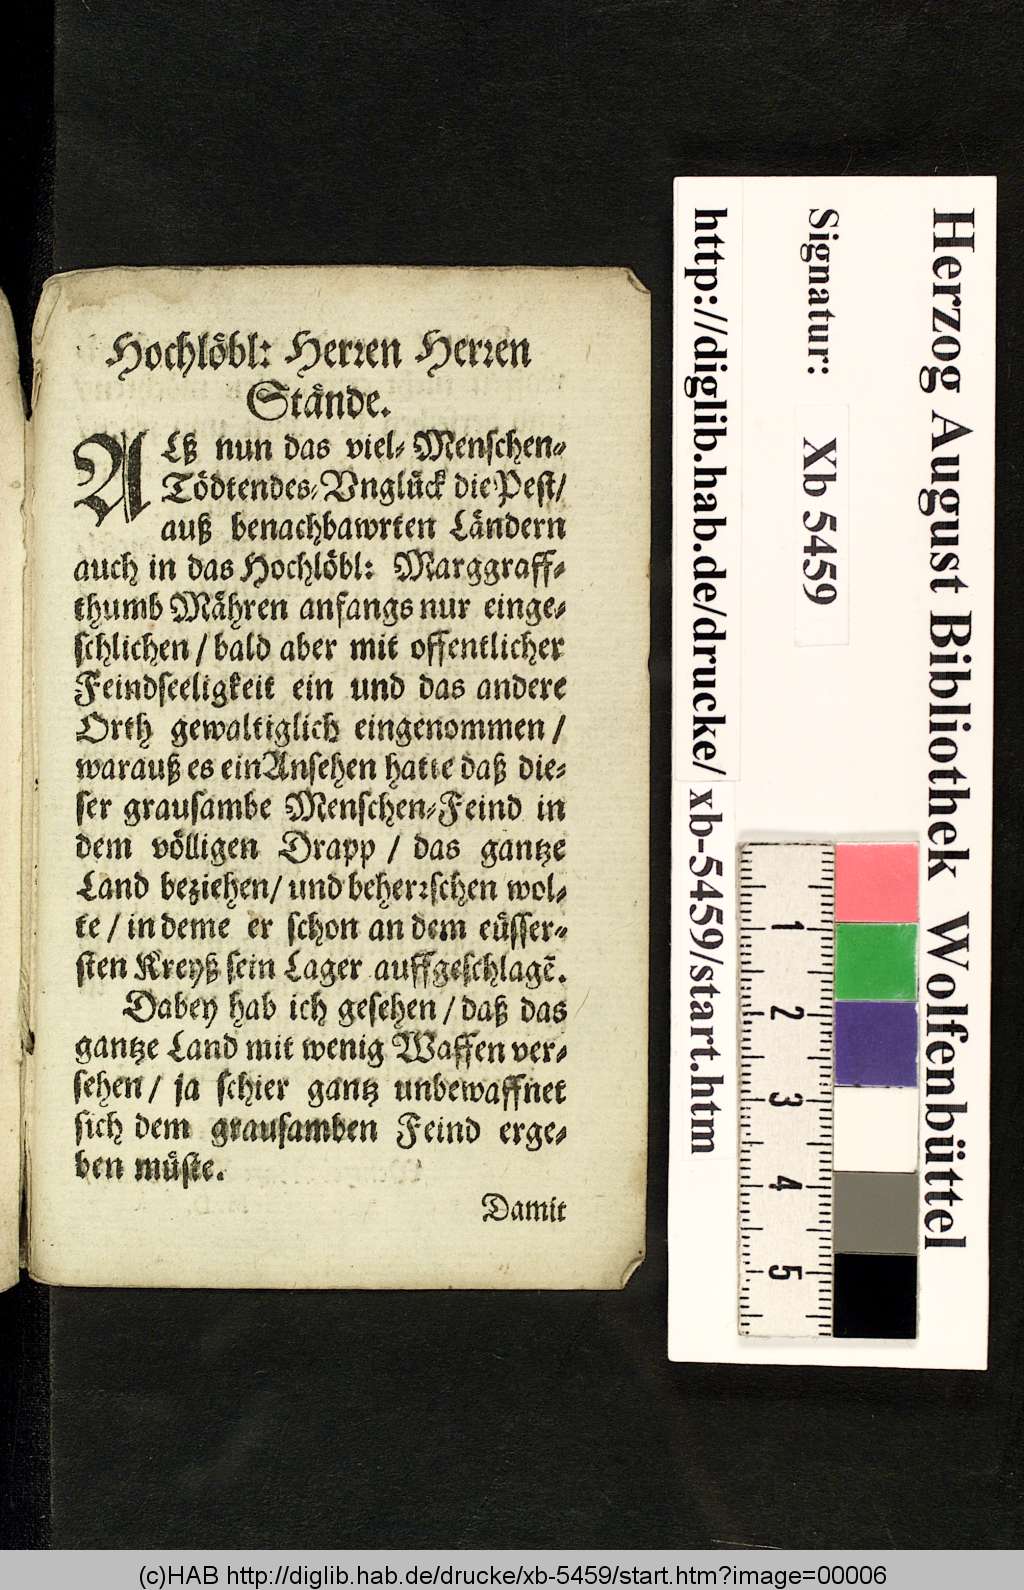 Hochlöbl: Herꝛen Herꝛen
Stände.
ALß nun das viel-Menschen-
Tödtendes-Vnglück die Pest/
auß benachbawrten Ländern
auch in das Hochlöbl: Marggraff-
thumb Mähren anfangs nur einge-
schlichen / bald aber mit offentlicher
Feindseeligkeit ein und das andere
Orth gewaltiglich eingenommen /
warauß es ein Ansehen hatte daß die-
ser grausambe Menschen-Feind in
dem völligen Drapp / das gantze
Land beziehen/ und beherꝛschen wol-
te / in deme er schon an dem eüsser-
sten Kreyß sein Lager auffgeschlagē.
Dabey hab ich gesehen / daß das
gantze Land mit wenig Waffen ver-
sehen / ja schier gantz unbewaffnet
sich dem grausamben Feind erge-
ben müste.
Damit
Herzog August Bibliothek Wolfenbüttel
Signatur: Xb 5459
http://diglib.hab.de/drucke/ xb-5459/start.htm
1
2
3
4
5
(c)HAB http://diglib.hab.de/drucke/xb-5459/start.htm?image=00006